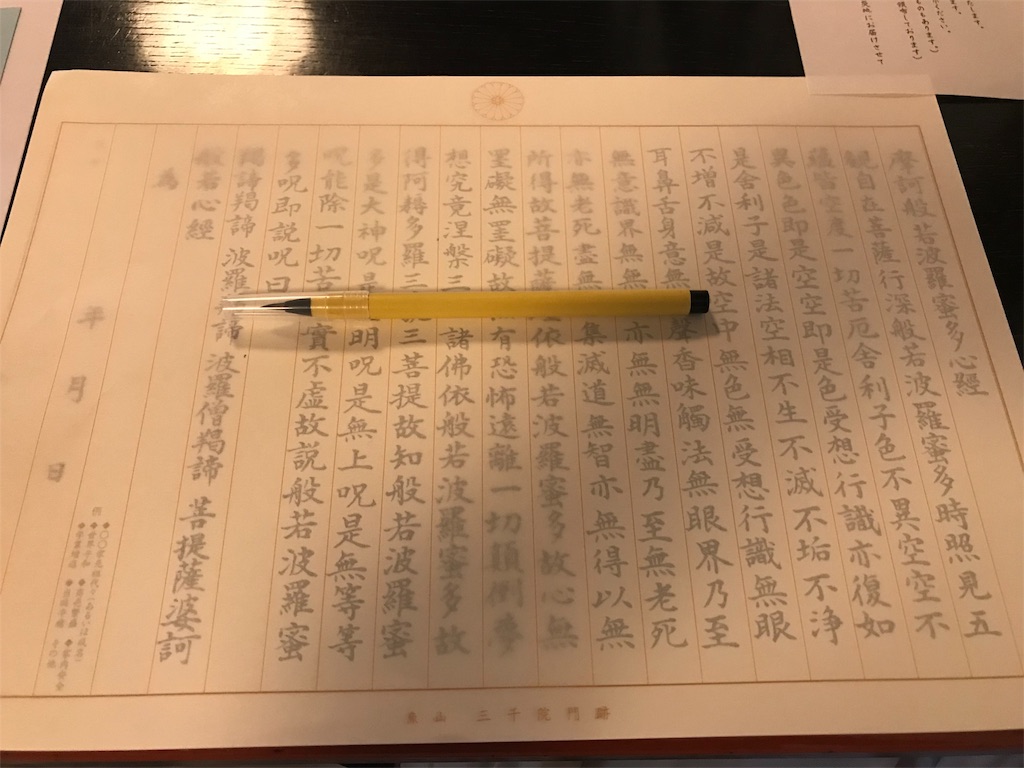 します。
ださい。
ます。
ものもあります）
領帯しております）
摩訶般若波羅蜜多心經
觀自在菩薩行深般若波羅蜜多時照見五
蘊皆空度一切苦厄舍利子色不異空空不
異色色即是空空即是色受想行識亦復如
是舍利子是諸法空相不生不滅不垢不浄
不增不減是故空中無色無受想行識無眼
耳鼻舌身意無聲香味觸法無眼界乃至
無意識界無無亦無無明盡乃至無老死
亦無老死盡無集滅道無智亦無得以無
所得故菩提薩依般若波羅蜜多故心無
罣礙無罣礙故有恐怖遠離一切顛倒夢
想究竟涅槃三諸佛依般若波羅蜜多故
得阿耨多羅三三菩提故知般若波羅蜜
多是大神呪是明呪是無上呪是無等等
呪能除一切苦實不虛故説般若波羅蜜
多呪即説呪曰
羯諦羯諦 波羅諦 波羅僧羯諦 菩提薩婆訶
般若心經
為
年 月 日
魚山 三千院門跡